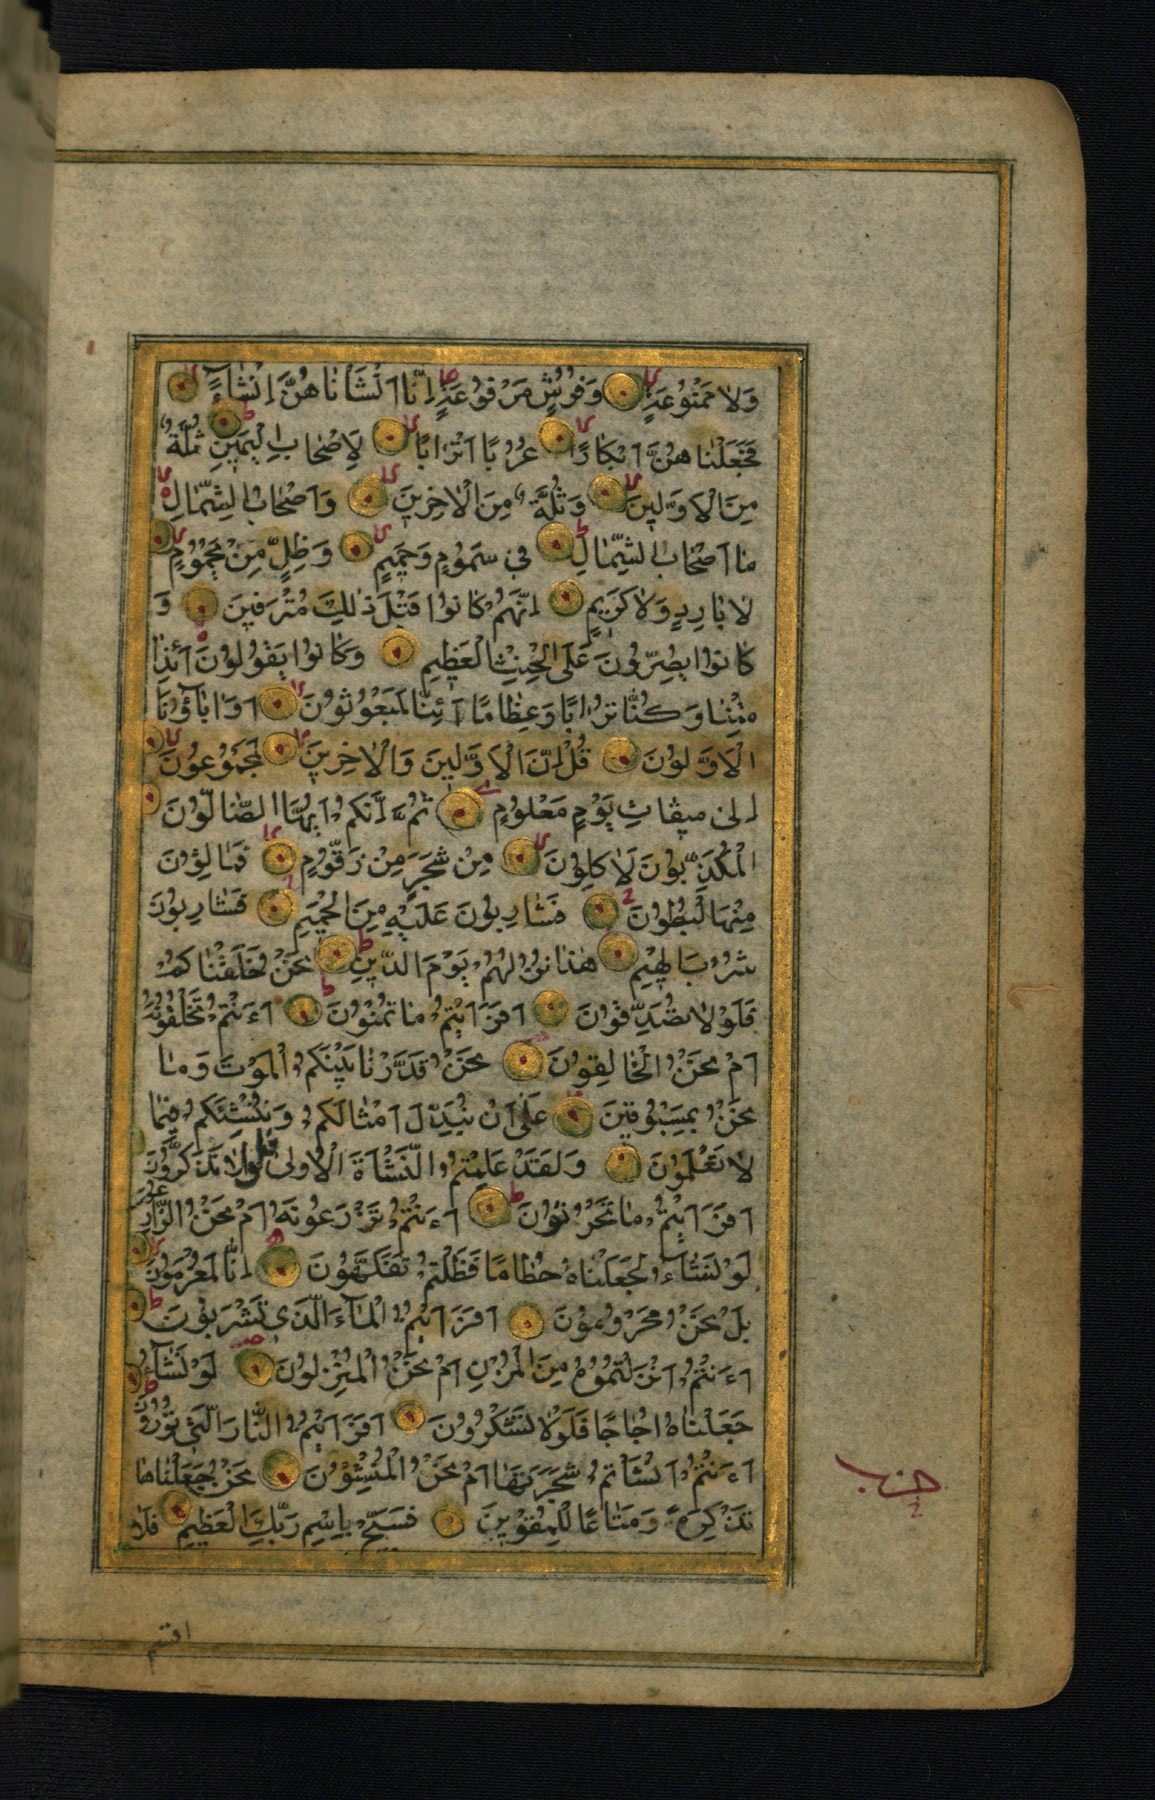 وَلَا مَمْنُوعَةٍ وَفُرُشٍ مَرْفُوعَةٍ اِنَّا اَنْشَاْنَاهُنَّ اِنْشَآءً
فَجَعَلْنَاهُنَّ اَبْكَارًا عُرُبًا اَتْرَابًا لِاَصْحَابِ الْيَمِينِ ثُلَّةٌ
مِنَ الْاَوَّلِينَ وَثُلَّةٌ مِنَ الْاٰخِرِينَ وَاَصْحَابُ الشِّمَالِ
مَا اَصْحَابُ الشِّمَالِ فِي سَمُومٍ وَحَمِيمٍ وَظِلٍّ مِنْ يَحْمُومٍ
لَا بَارِدٍ وَلَا كَرِيمٍ اِنَّهُمْ كَانُوا قَبْلَ ذٰلِكَ مُتْرَفِينَ وَ
كَانُوا يُصِرُّونَ عَلَى الْحِنْثِ الْعَظِيمِ وَكَانُوا يَقُولُونَ اَئِذَا
مِتْنَا وَكُنَّا تُرَابًا وَعِظَامًا اَئِنَّا لَمَبْعُوثُونَ اَوَاٰبَآؤُنَا
الْاَوَّلُونَ قُلْ اِنَّ الْاَوَّلِينَ وَالْاٰخِرِينَ لَمَجْمُوعُونَ
اِلٰى مِيقَاتِ يَوْمٍ مَعْلُومٍ ثُمَّ اِنَّكُمْ اَيُّهَا الضَّالُّونَ
الْمُكَذِّبُونَ لَاٰكِلُونَ مِنْ شَجَرٍ مِنْ زَقُّومٍ فَمَالِؤُنَ
مِنْهَا الْبُطُونَ فَشَارِبُونَ عَلَيْهِ مِنَ الْحَمِيمِ فَشَارِبُونَ
شُرْبَ الْهِيمِ هٰذَا نُزُلُهُمْ يَوْمَ الدِّينِ نَحْنُ خَلَقْنَاكُمْ
فَلَوْلَا تُصَدِّقُونَ اَفَرَاَيْتُمْ مَا تُمْنُونَ ءَاَنْتُمْ تَخْلُقُونَهُ
اَمْ نَحْنُ الْخَالِقُونَ نَحْنُ قَدَّرْنَا بَيْنَكُمُ الْمَوْتَ وَمَا
نَحْنُ بِمَسْبُوقِينَ عَلٰى اَنْ نُبَدِّلَ اَمْثَالَكُمْ وَنُنْشِئَكُمْ فِيمَا
لَا تَعْلَمُونَ وَلَقَدْ عَلِمْتُمُ النَّشْاَةَ الْاُولٰى فَلَوْلَا تَذَكَّرُونَ
اَفَرَاَيْتُمْ مَا تَحْرُثُونَ ءَاَنْتُمْ تَزْرَعُونَهُ اَمْ نَحْنُ الزَّارِعُونَ
لَوْ نَشَآءُ لَجَعَلْنَاهُ حُطَامًا فَظَلْتُمْ تَفَكَّهُونَ اِنَّا لَمُغْرَمُونَ
بَلْ نَحْنُ مَحْرُومُونَ اَفَرَاَيْتُمُ الْمَآءَ الَّذِي تَشْرَبُونَ
ءَاَنْتُمْ اَنْزَلْتُمُوهُ مِنَ الْمُزْنِ اَمْ نَحْنُ الْمُنْزِلُونَ لَوْ نَشَآءُ
جَعَلْنَاهُ اُجَاجًا فَلَوْلَا تَشْكُرُونَ اَفَرَاَيْتُمُ النَّارَ الَّتِي تُورُونَ
ءَاَنْتُمْ اَنْشَاْتُمْ شَجَرَتَهَا اَمْ نَحْنُ الْمُنْشِؤُنَ نَحْنُ جَعَلْنَاهَا
تَذْكِرَةً وَمَتَاعًا لِلْمُقْوِينَ فَسَبِّحْ بِاسْمِ رَبِّكَ الْعَظِيمِ فَلَا
حزب
اقسم